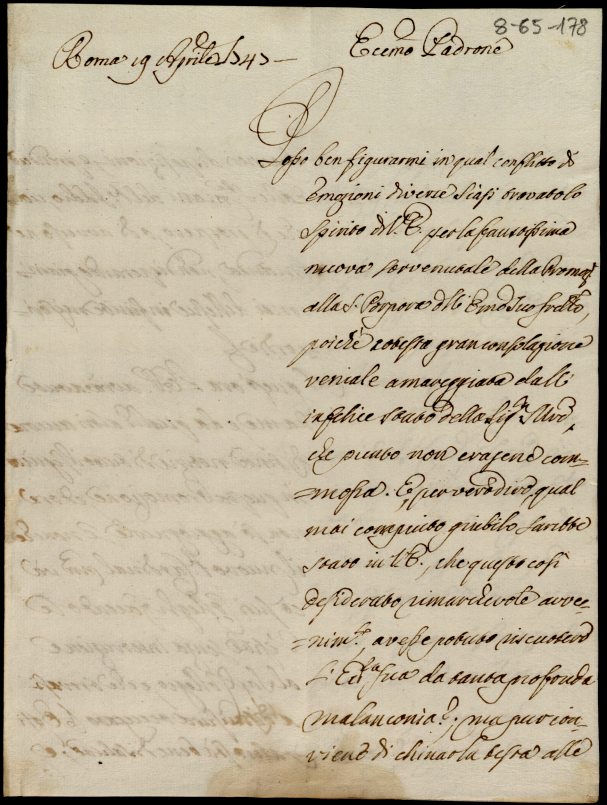 8-65-178
Roma 19 Aprile 1747
Eccmo Padrone
Posso ben figurarmi in qual conflitto di
emozioni diverse siasi trovato lo
spirito di V. E. per la faustissima
nuova sorvenutale della Promoz.
alla S. Porpora dell Emo Suo frallo,
poichè cotesta gran consolazione
veniale amareggiata dall
infelice stato della Sig.ra
che punto non erasene com=
=mossa. E, per vero dire, qual
mai compiuto giubilo sarebbe
stato in V. E., che questo così
desiderato rimarchevole avve=
=nim.to, avesse potuto riscuotere
l'Ecc.za sua da tanta profonda
malanconia?; ma pur con=
viene di chinar la testa alle